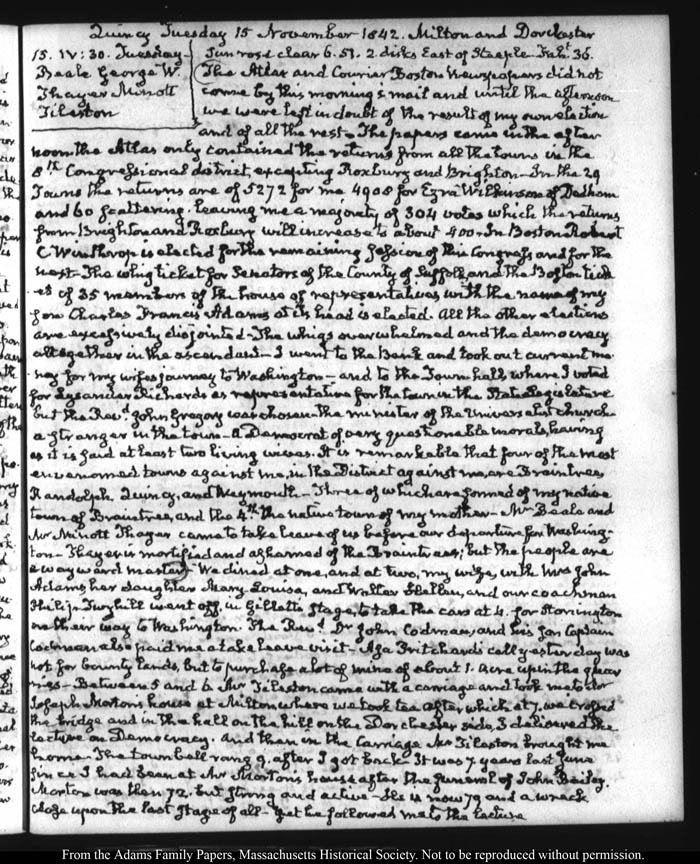 Quincy Tuesday 15 November 1842. Milton and Dorchester
15. IV:30. Tuesday
Beale George W.
Thayer Minott
Tileston
Sun rose clear 6.51. 2 disks East of Steeple Faht. 36.
The Atlas and Courier Boston Newspapers did not
come by this morning's mail and until the afternoon
we were left in doubt of the result of my own election
and of all the rest— The papers came in the after
noon the Atlas only contained the returns from all the towns in the
8th. Congressional district, excepting Roxbury and Brighton— In the 29
Towns the returns are of 5272 for me 4908 for Ezra Wilkinson of Dedham
and 60 scattering. leaving me a majority of 304 votes which the returns
from Brighton and Roxbury will increase to about 400. In Boston Robert
C. Winthrop is elected for the remaining session of this Congress and for the
next— The whig ticket for Senators of the County of Suffolk, and the Boston tick
-et of 35 members of the house of representatives with the name of my
son Charles Francis Adams at its head is elected. All the other elections
are excessively disjointed— The whigs overwhelmed and the democracy
altogether in the ascendant— I went to the Bank and took out current mo-
ney for my wife's journey to Washington— and to the Town hall where I voted
for Lysander Richards as representative for the town in the State Legislature
but the Revd. John Gregory was chosen— the minister of the Universalist church
a stranger in the town— a Democrat of very questionable morals, having
as it is said at least two living wives. It is remarkable that four of the most
envenomed towns against me, in the District against me, are Braintree,
Randolph, Quincy, and Weymouth— Three of which are formed of my native
town of Braintree, and the 4th. the native town of my mother— Mr Beale and
Mr Minott Thayer came to take leave of us before our departure for Washing-
ton— Thayer is mortified and ashamed of the Braintrees; but the people are
a wayward master— We dined at one, and at two, my wife, with Mrs John
Adams, her daughter Mary Louisa, and Walter Hellen, and our coachman
Philip Twyhill went off, in Gillett's stage, to take the cars at 4. for Stonington
on their way to Washington. The Revd. Dr John Codman, and his son Captain
Codman also paid me a take leave visit— Asa Pritchard's call yesterday was
not for bounty lands, but to purchase a lot of mine of about 1. acre upon the quar
ries— Between 5 and 6 Mr Tileston came with a carriage and took me to Mr
Joseph Morton's house at Milton where we took tea after which at 7. we crossed
the bridge and in the hall on the hill on the Dorchester side, I delivered the
lecture on Democracy. And then in the Carriage Mr Tileston brought me
home— The town bell rang 9. after I got back. It was 7 years last June
since I had been at Mr Morton's house after the funeral of John Bailey.
Morton was then 72. but strong and active— He is now 79 and a wreck
close upon the last stage of all— yet he followed me to the lecture
From the Adams Family Papers, Massachusetts Historical Society. Not to be reproduced without permission.